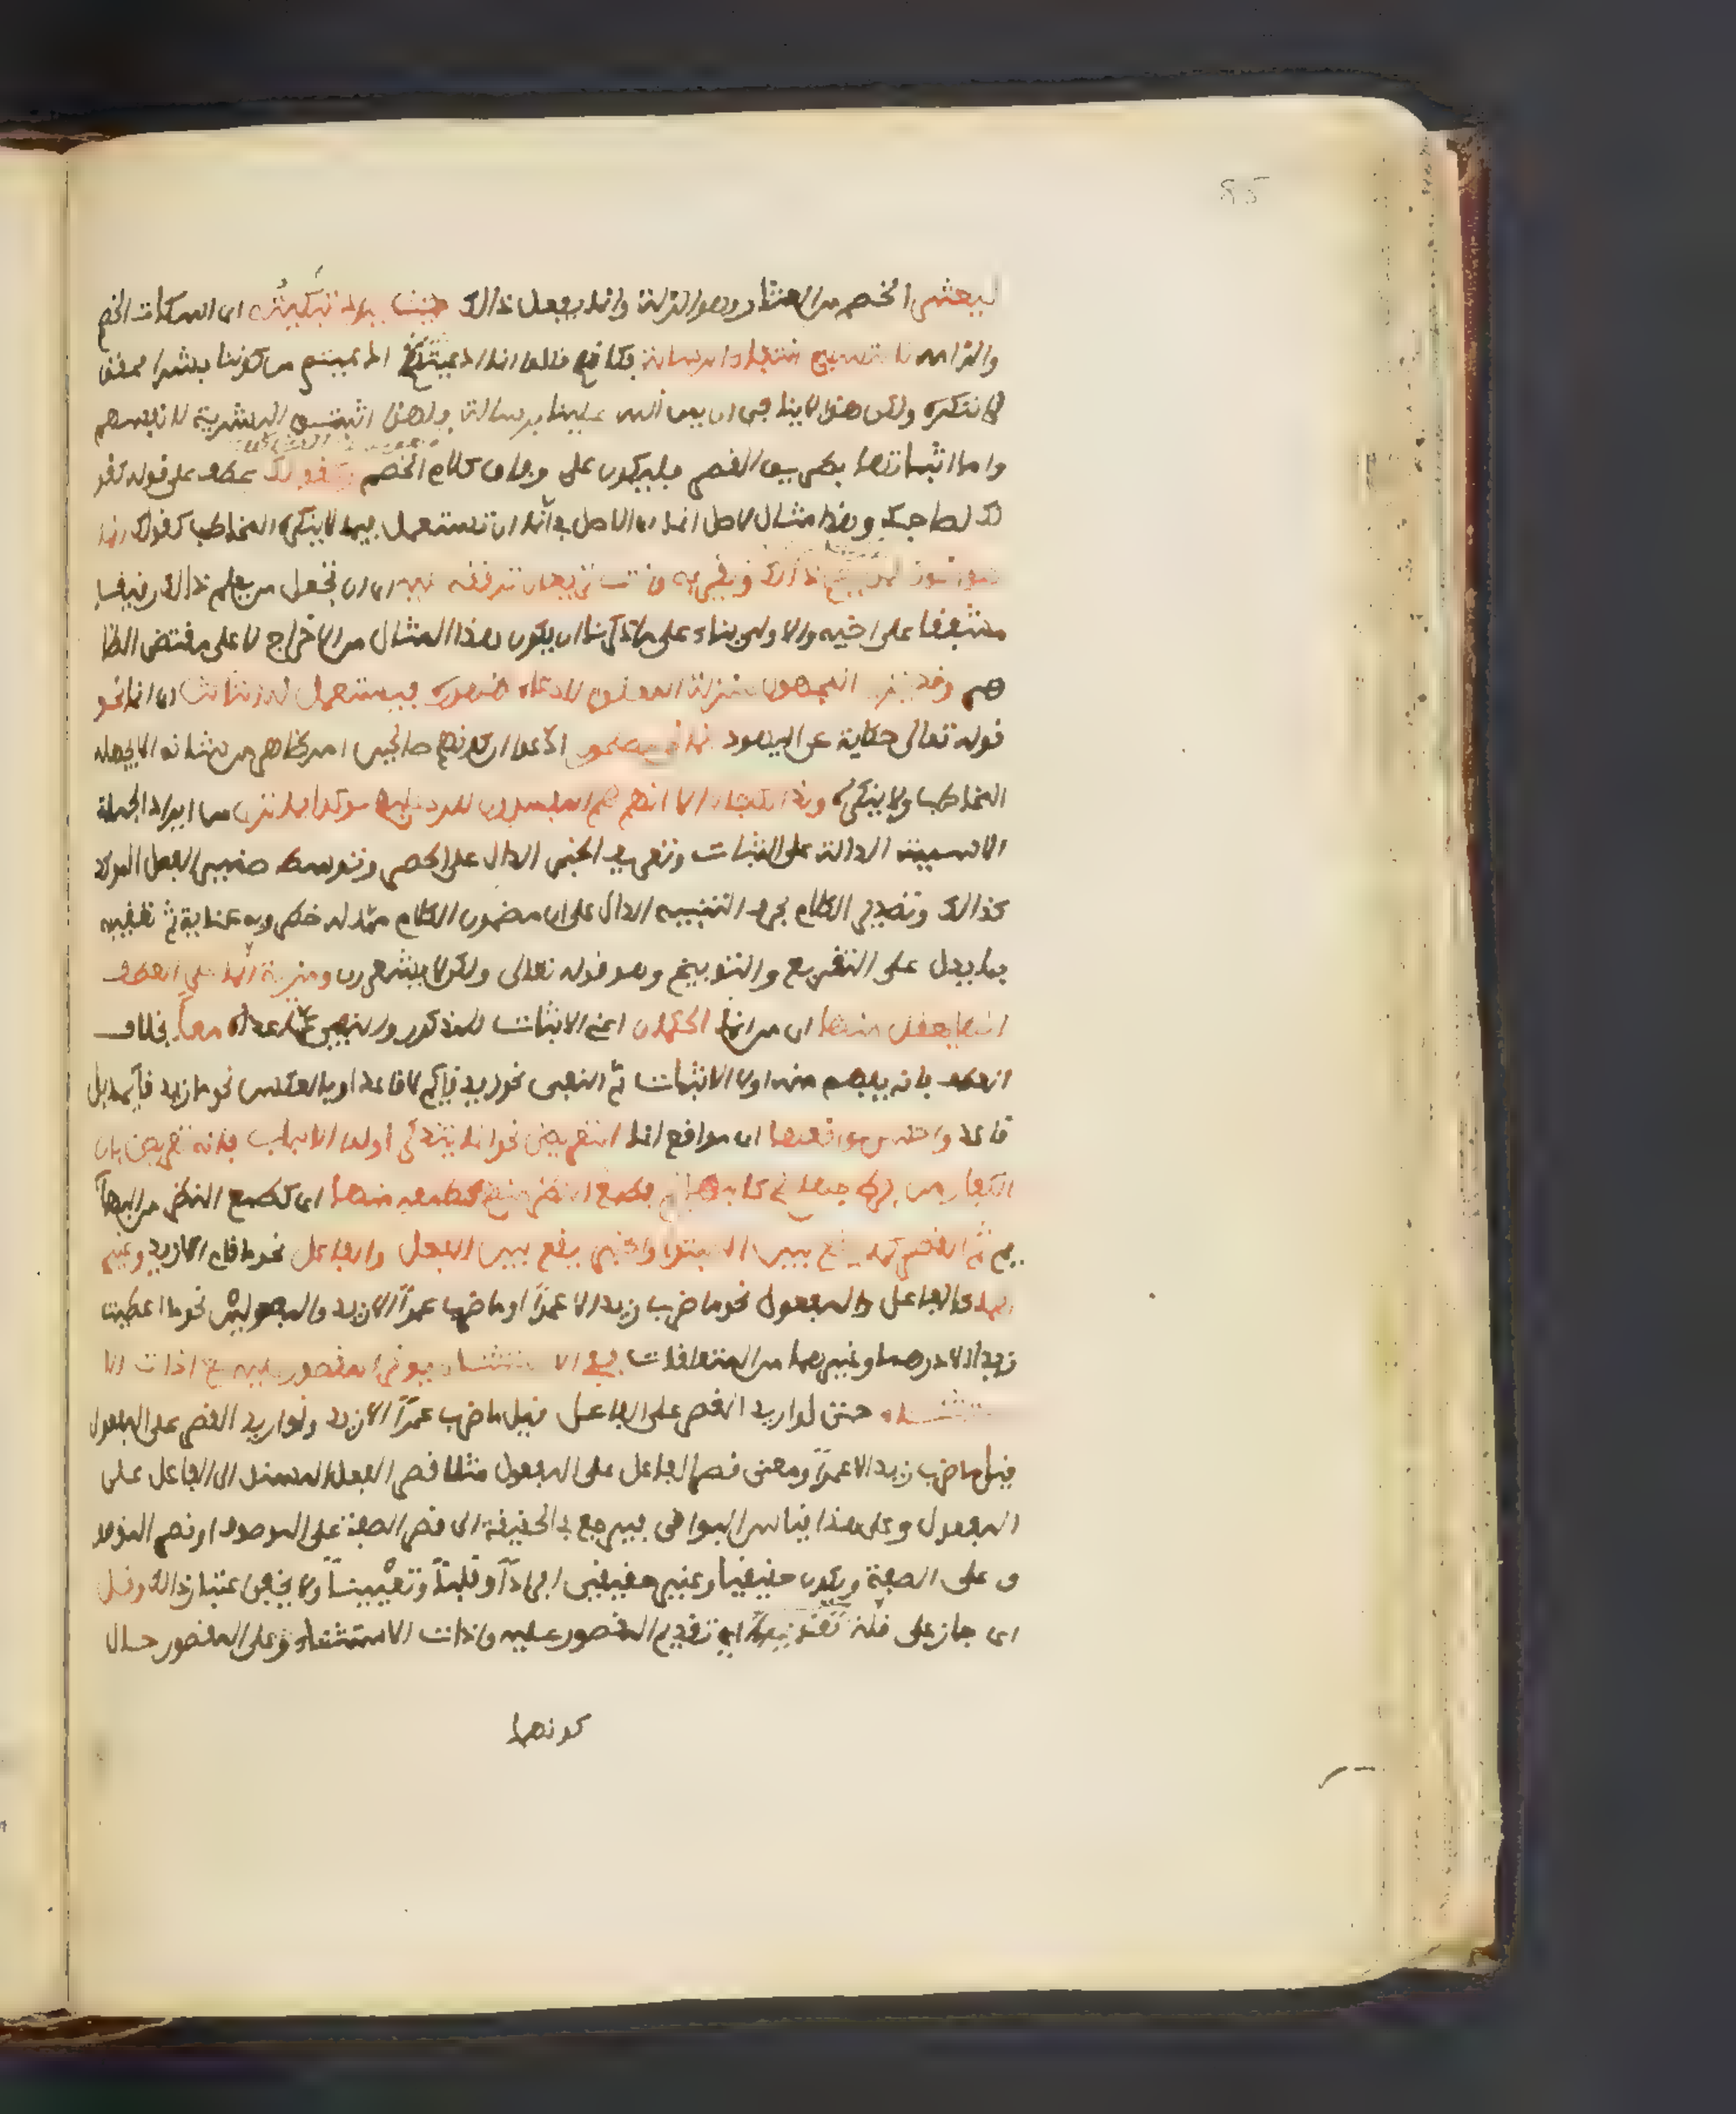 ليعثر الخصم من العثار وهو الزلة وانما يفعل ذالك حيث يراد تبكيته اى اسكات الخصم
والزامه لا تسليم انتفاء الرسالة فكانهم قالوا ان ما ادعيتم من كوننا بشرا فحق
لا ننكره ولكن هذا لا ينافى ان يمن الله علينا بالرسالة فلهذا اثبتوا البشرية لانفسهم
واما اثباتها بطريق القصر فليكون على وفاق كلام الخصم وكقولك عطف على قوله كقو
لك لصاحبك وهذا مثال لاصل انما اى الاصل فى انما ان تستعمل فيما لا ينكره المخاطب كقولك انما
هو اخوك لمن يعلم ذالك ويقر به وانت تريد ان ترققه عليه اى ان تجعل من يعلم ذالك رفيقا
مشفقا على اخيه والاولى بناء على ما ذكرنا ان يكون هذا المثال من الاخراج لا على مقتضى الظا
هر وقد ينزل المجهول منزلة المعلوم لادعاء ظهوره فيستعمل له الثالث اى انما نحو
قوله تعالى حكاية عن اليهود انما نحن مصلحون ادعوا ان كونهم مصلحين امر ظاهر من شانه الا يجهله
المخاطب ولا ينكره ولذالك جاء الا انهم هم المفسدون للرد عليهم مؤكدا بما ترى من ايراد الجملة
الاسمية الدالة على الثبات وتعريف الخبر الدال على الحصر وتوسط ضمير الفصل المؤكد
لذالك وتصدير الكلام بحرف التنبيه الدال على ان مضمون الكلام مما له خطر وبه عناية ثم تعقيبه
بما يدل على التقريع والتوبيخ وهو قوله تعالى ولكن لا يشعرون ومزية انما على العطف
انه يعقل منها اى من انما الحكمان اعنى الاثبات للمذكور والنفى عما عداه معا بخلاف
العطف فانه يفهم منه اولا الاثبات ثم النفى نحو زيد قايم لا قاعد او بالعكس نحو ما زيد قايما بل
قاعدا واحسن مواقعها اى مواقع انما التعريض نحو انما يتذكر اولوا الالباب فانه تعريض بان
الكفار من فرط جهلهم كالبهايم فطمع النظر منهم كطمعه منها اى كطمع النظر من البها
يم ثم القصر كما يقع بين المبتدا والخبر يقع بين الفعل والفاعل نحو ما قام الا زيد وغير
هما كالفاعل والمفعول نحو ما ضرب زيد الا عمرا او ما ضرب عمرا الا زيد والمفعولين نحو ما اعطيت
زيدا الا درهما وغيرهما من المتعلقات ففى الاستثناء يوخر المقصور عليه مع اداة الا
ستثناء حتى لو اريد القصر على الفاعل قيل ما ضرب عمرا الا زيد ولو اريد القصر على المفعول
قيل ما ضرب زيد الا عمرا ومعنى قصر الفاعل على المفعول مثلا قصر الفعل المسند الى الفاعل على
المفعول وعلى هذا قياس البواقى فيرجع فى الحقيقة الى قصر الصفة على الموصوف او قصر الموصو
ف على الصفة ويكون حقيقيا وغير حقيقى افرادا وقلبا وتعيينا ولا يخفى اعتبار ذالك وقل
اى جاز على قلة تقديمهما اى تقديم المقصور عليه واداة الاستثناء على المقصور حال
كونهما